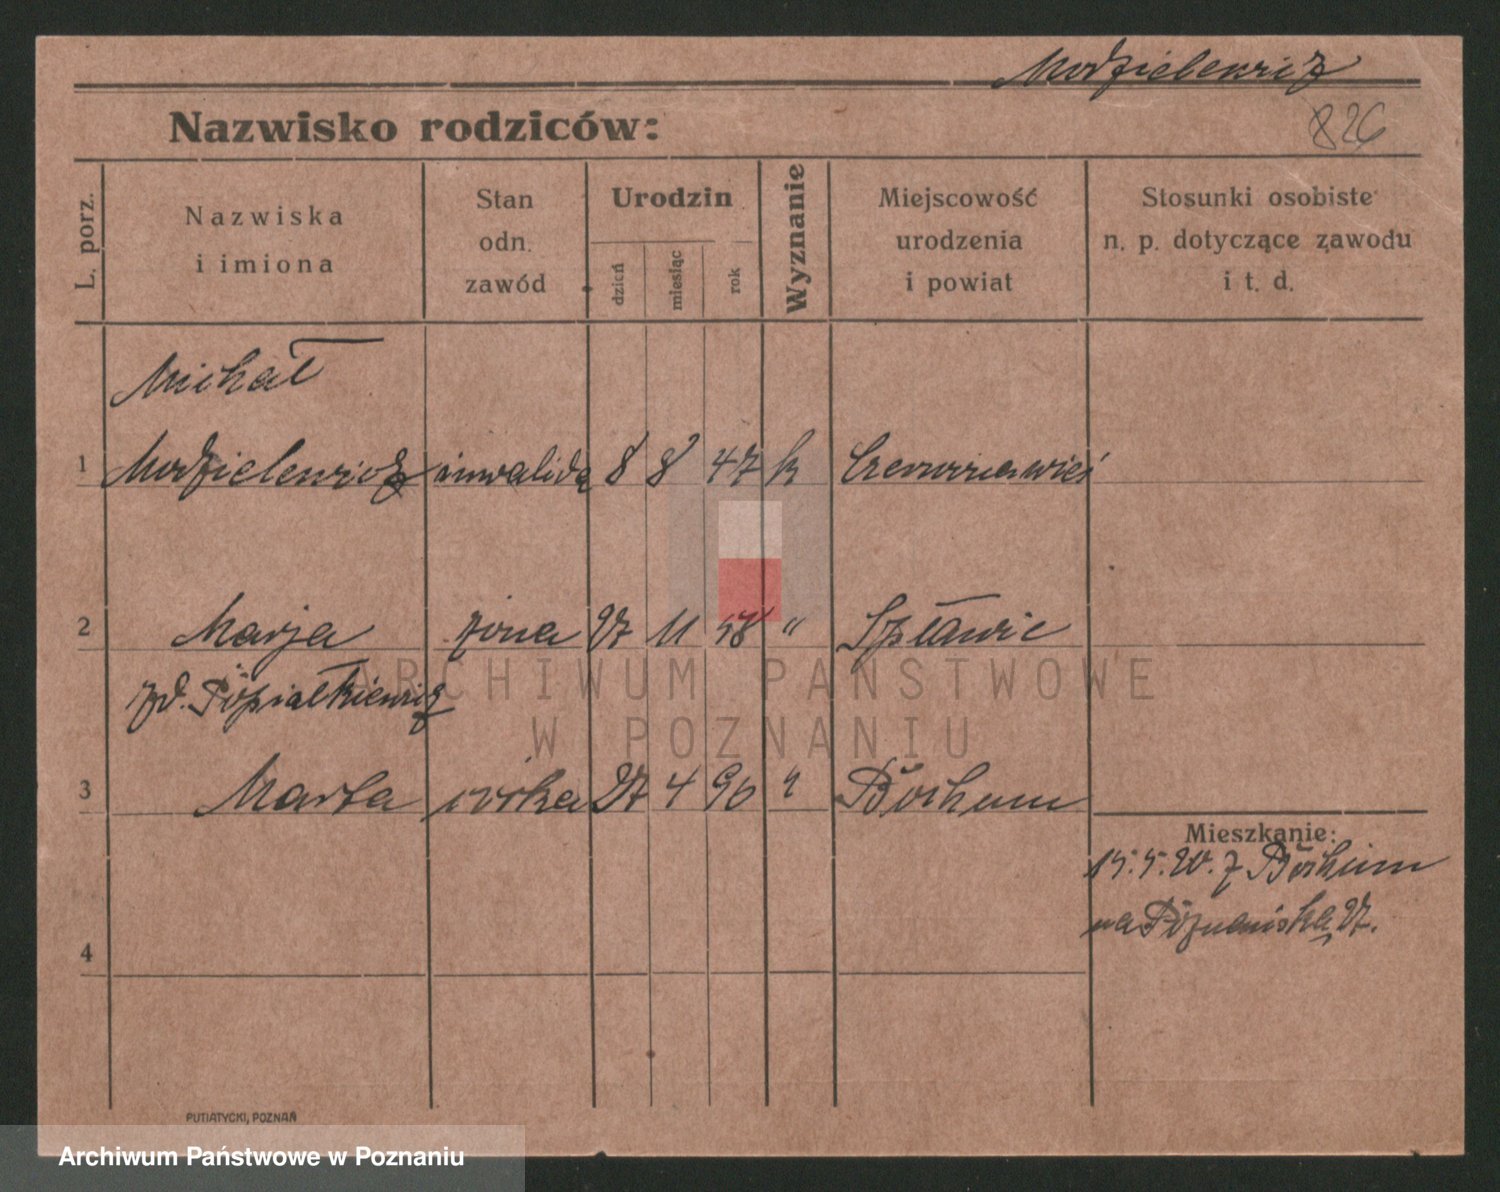 Modzielewicz
826
Nazwisko rodziców:
L. porz.
Nazwiska
i imiona
Stan
odn.
zawód
Urodzin
dzień
miesiąc
rok
Wyznanie
Miejscowość
urodzenia
i powiat
Stosunki osobiste
n. p. dotyczące zawodu
i t. d.
Michał
1 Modzielewicz inwalida 8 8 47 k
2 Marja żona 27 11 48 " Spławie
zd.
3 Marta córka 27 4 90 " Bochum
Mieszkanie:
15.5.20. z Bochum
na Poznańska 27.
4
ARCHIWUM PAŃSTWOWE
W POZNANIU
PUTIATYCKI, POZNAŃ
Archiwum Państwowe w Poznaniu